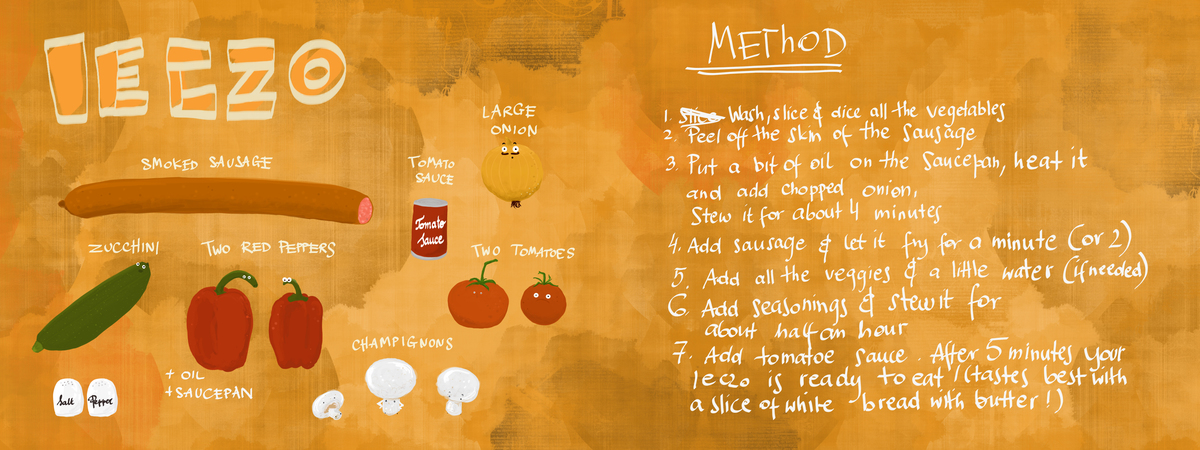 lECZO
SMOKED SAUSAGE
LARGE
ONION
TOMATO
SAUCE
Tomato
Sauce
ZUCCHINI
TWO RED PEPPERS
TWO TOMATOES
CHAMPIGNONS
Salt
Pepper
+ OIL
+ SAUCEPAN
METhOD
1. Slice Wash, slice & dice all the vegetables
2. Peel off the skin of the sausage
3. Put a bit of oil on the saucepan, heat it
and add chopped onion,
Stew it for about 4 minutes
4. Add sausage & let it fry for a minute (or 2)
5. Add all the veggies & a little water (if needed)
6. Add seasonings & stew it for
about half an hour
7. Add tomatoe sauce. After 5 minutes your
leczo is ready to eat! (tastes best with
a slice of white bread with butter!)